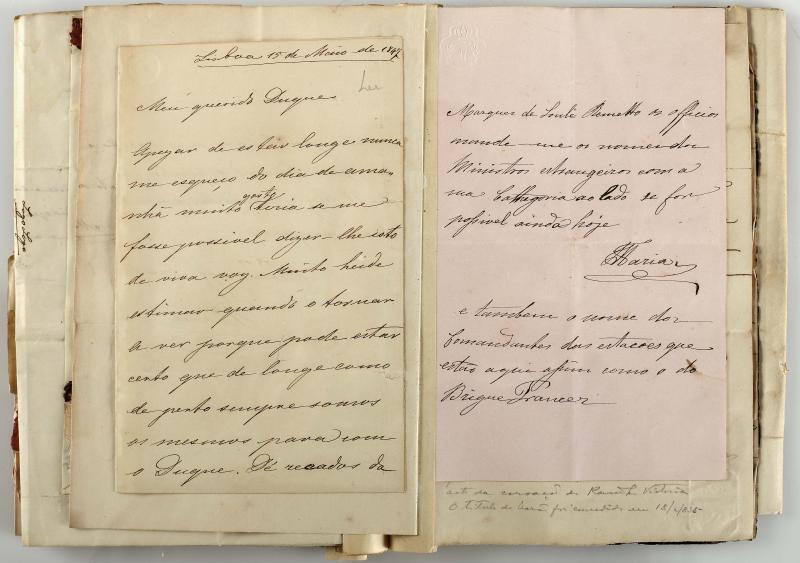 Lisboa 15 de Maio de 1847
Meu querido Duque
Apezar de estar longe nunca
me esqueço do dia de ama-
nhã muito gosto teria se me
fosse possivel dizer-lhe isto
de viva voz. Muito heide
estimar quando o tornar
a ver porque pode estar
certo que de longe como
de perto sempre somos
os mesmos para com
o Duque. Dê recados da
Marquez de Remetto os officios
mande-me os nomes dos
Ministros estrangeiros com a
sua Cathegoria ao lado se for
possivel ainda hoje
Maria
e tambem o nome dos
Comandantes das estacões que
estão aqui assim como o do
Brigue Francez
da coroação da Rainha Victoria
O titulo de foi concedido em